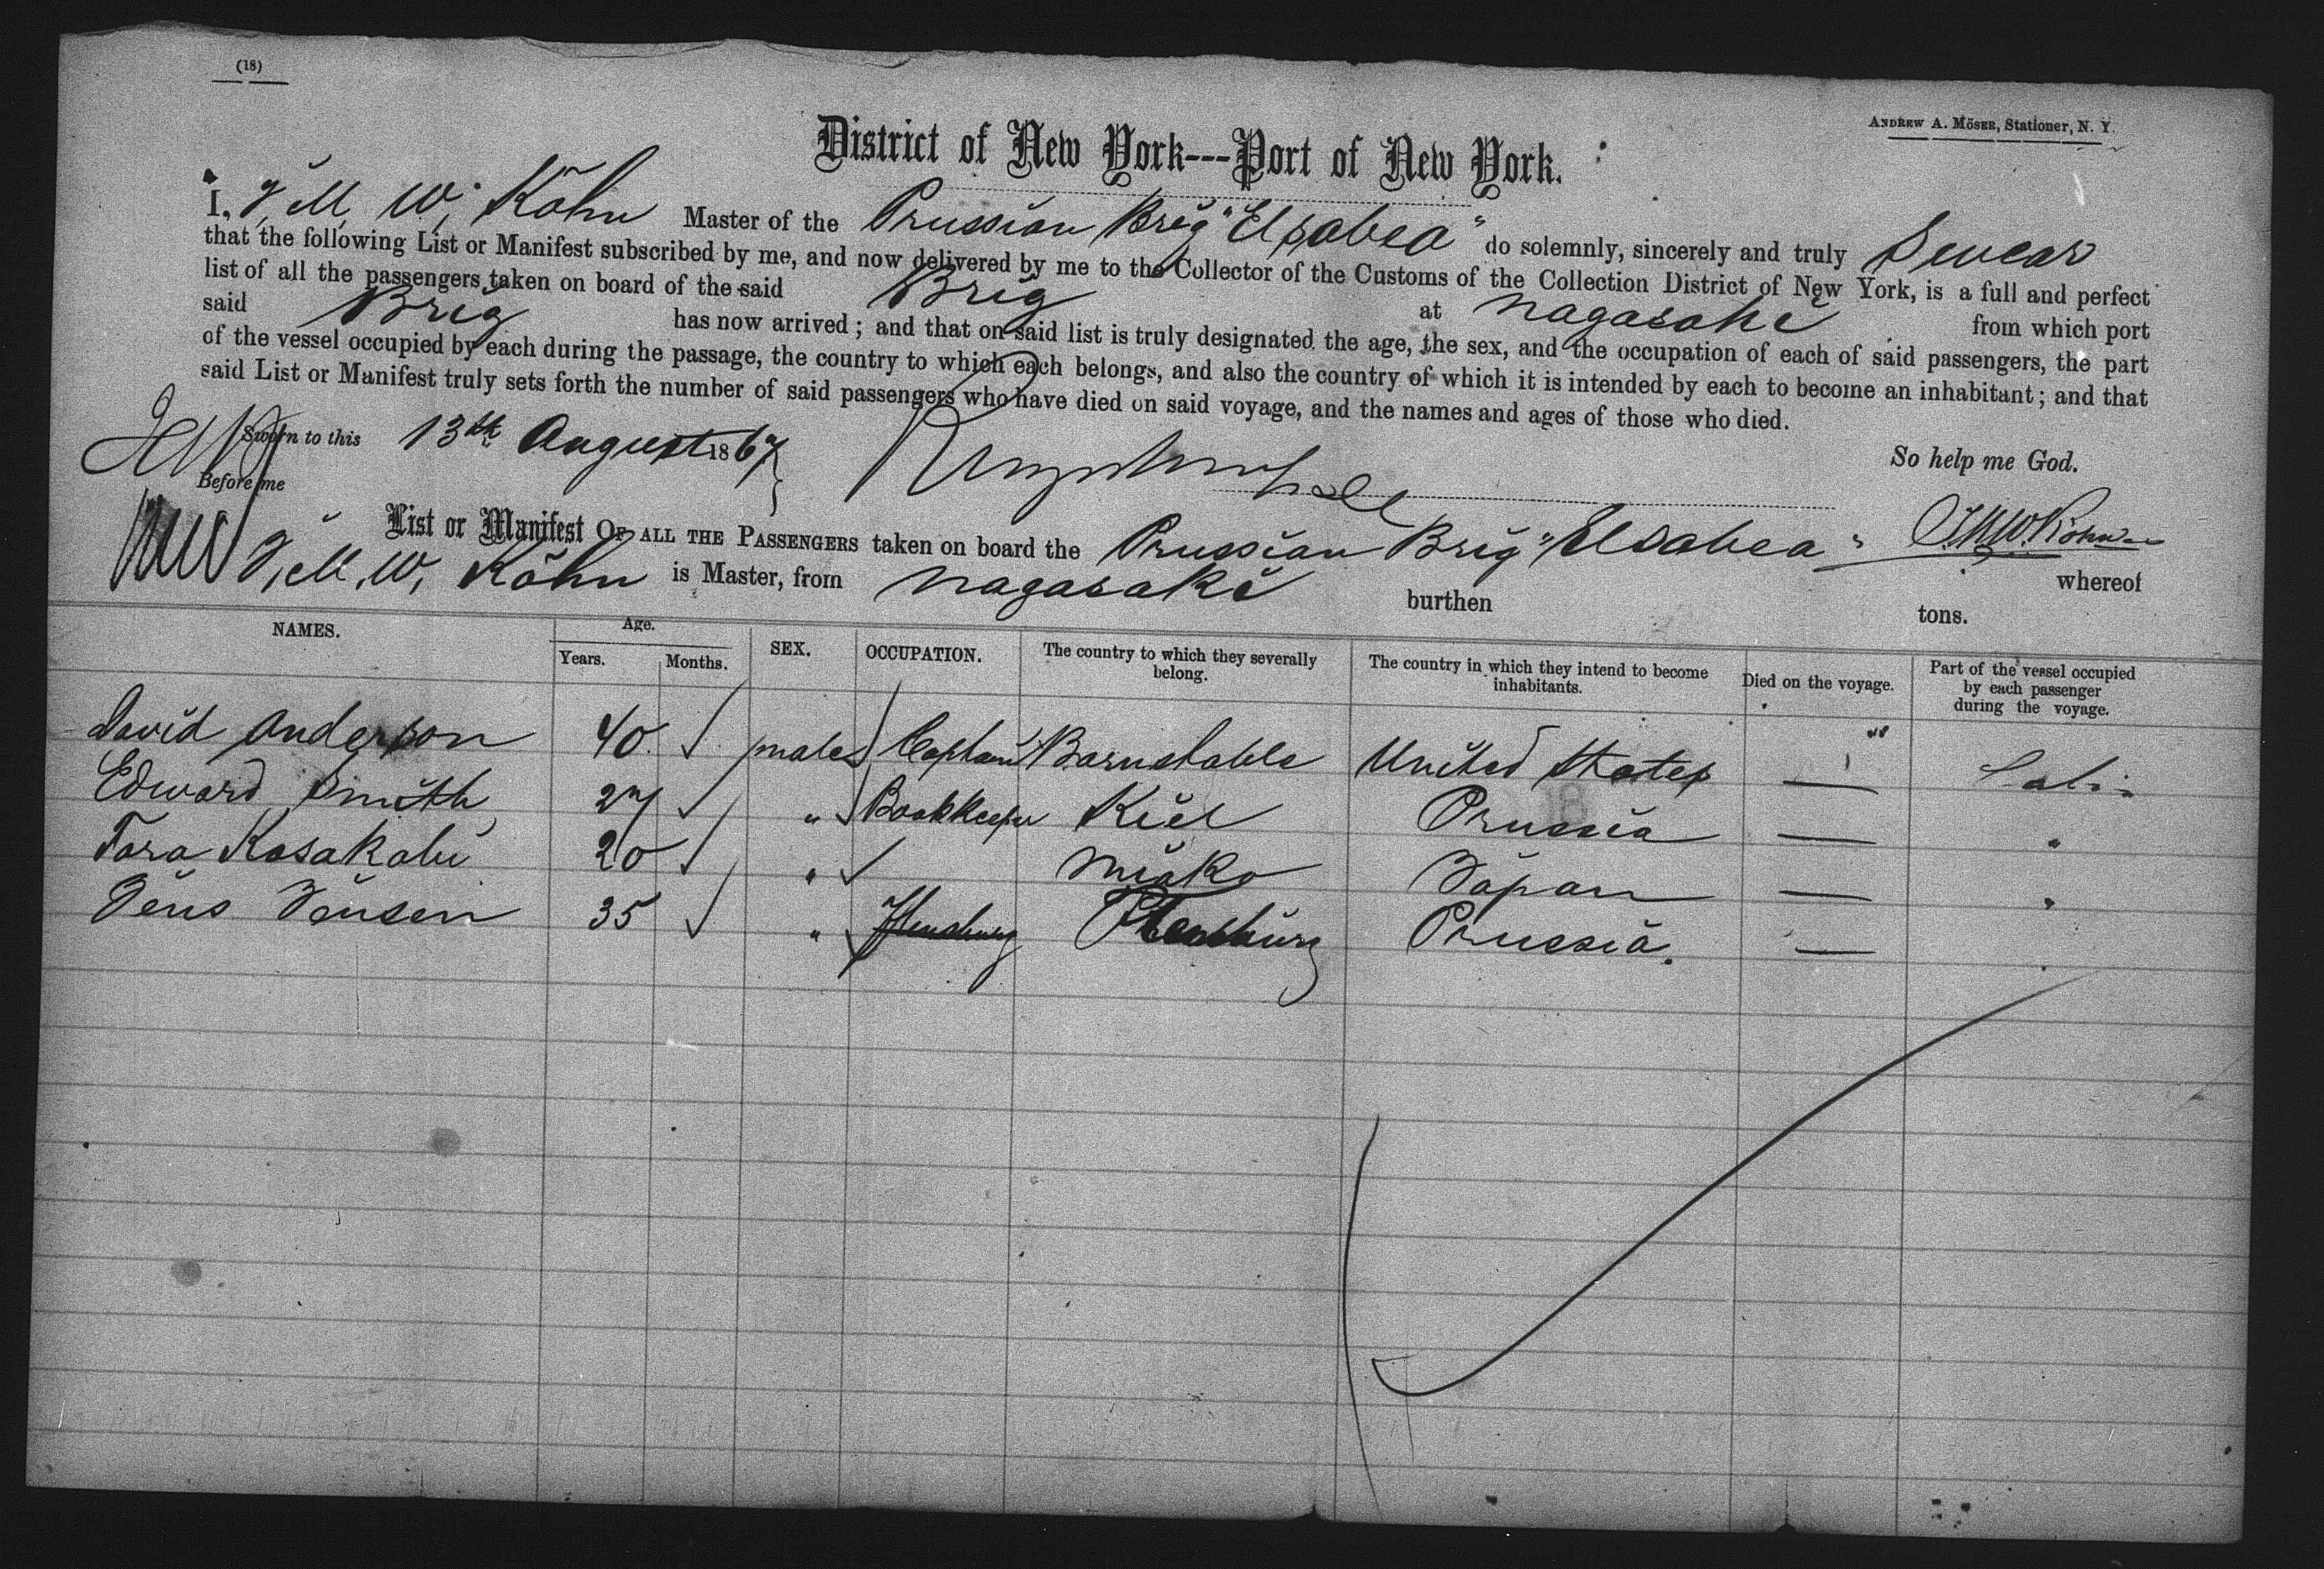 (18)
ANDREW A. MÖSER, Stationer, N. Y.
District of New York---Port of New York.
I, J, M, W, Köhn Master of the Prussian Brig "Elsabea" do solemnly, sincerely and truly Swear
that the following List or Manifest subscribed by me, and now delivered by me to the Collector of the Customs of the Collection District of New York, is a full and perfect
list of all the passengers taken on board of the said Brig at Nagasaki from which port
said Brig has now arrived; and that on said list is truly designated the age, the sex, and the occupation of each of said passengers, the part
of the vessel occupied by each during the passage, the country to which each belongs, and also the country of which it is intended by each to become an inhabitant; and that
said List or Manifest truly sets forth the number of said passengers who have died on said voyage, and the names and ages of those who died.
Sworn to this 13th August 1867 So help me God.
Before me
J M W Köhn
List or Manifest OF ALL THE PASSENGERS taken on board the Prussian Brig "Elsabea" whereof
J, M, W, Köhn is Master, from Nagasaki burthen tons.
NAMES. Age. Years. Months. SEX. OCCUPATION. The country to which they severally belong. The country in which they intend to become inhabitants. Died on the voyage. Part of the vessel occupied by each passenger during the voyage.
David Anderson 40 males Captain Barnstable United States — Cabin
Edward Smith 27 " Bookkeeper Kiel Prussia — "
Tora Kosakabi 20 " Miako Japan — "
Jens Jensen 35 " Flensburg Flensburg Prussia. — "